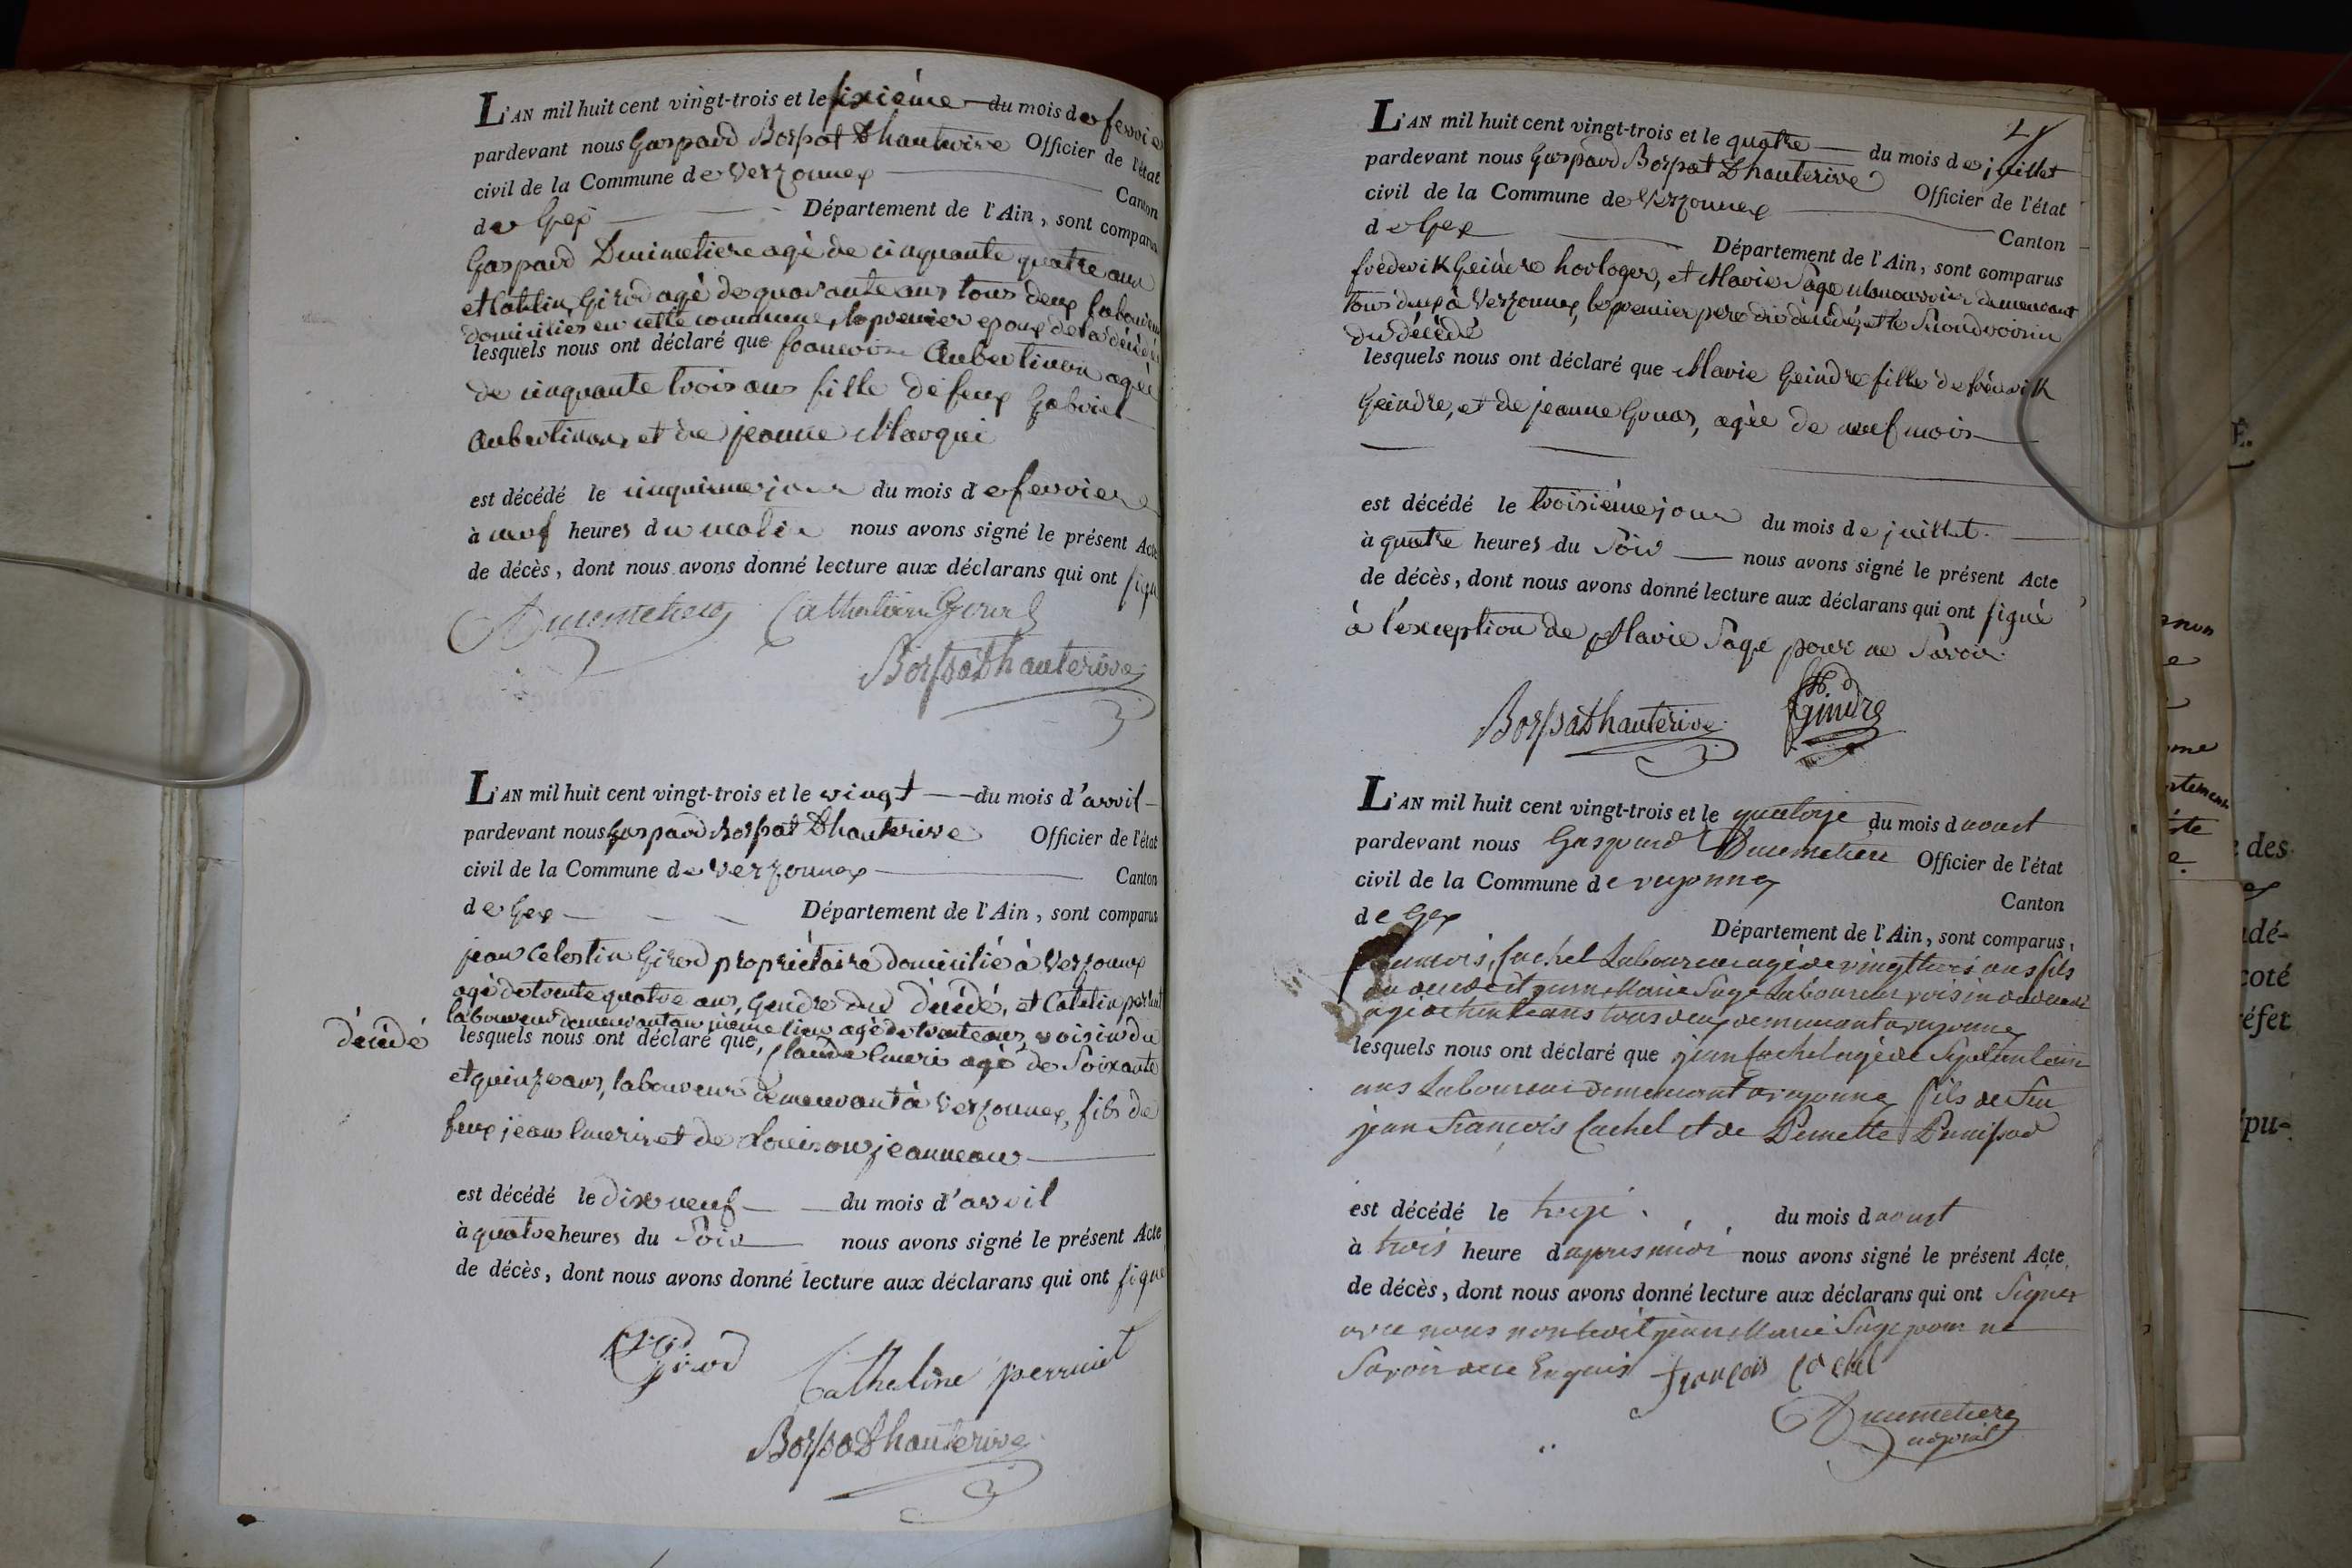 L'AN mil huit cent vingt-trois et le sixième du mois de fevrier
pardevant nous Gaspard Borssat Dhauterive Officier de l'état
civil de la Commune de Verzonnex Canton
de Gex Département de l'Ain, sont comparus
Gaspard Dumetiere agè de cinquante quatre ans
et Catelin Girod agè de quarante ans tous deux laboureurs
domiciliés en cette commune, le premier epoux de la décédée
lesquels nous ont déclaré que francoise Aubertinon agée
de cinquante trois ans fille de feux Gabriel
Aubertinon, et de jeanne Marqui
est décédé le cinquieme jour du mois de fevrier
à neuf heures du matin nous avons signé le présent Acte
de décès, dont nous avons donné lecture aux déclarans qui ont signé
Dumetiere Cathelin Girod
BorssatDhauterive
L'AN mil huit cent vingt-trois et le vingt du mois d'avril
pardevant nous Gaspard Borssat Dhauterive Officier de l'état
civil de la Commune de Verzonnex Canton
de Gex Département de l'Ain, sont comparus
jean Celestin Girod propriètaire domicilié à Verzonnex
agè de trente quatre ans, Gendre du décédé, et Catelin perruit
laboureur demeurant au même lieu agè de trente ans, voisin du
décédé lesquels nous ont déclaré que, Claude Emeri agè de Soixante
et quinze ans, laboureur demeurant à Verzonnex, fils de
feux jean Emeri et de Louison jeanneau
est décédé le dix neuf du mois d'avril
à quatre heures du Soir nous avons signé le présent Acte
de décès, dont nous avons donné lecture aux déclarans qui ont signé
Girod
Catheline perruit
BorssatDhauterive
4
L'AN mil huit cent vingt-trois et le quatre du mois de juillet
pardevant nous Gaspard Borssat Dhauterive Officier de l'état
civil de la Commune de Verzonnex Canton
de Gex Département de l'Ain, sont comparus
frederik Geindre horloger, et Marie Sage demeurant
tous deux à Verzonnex, le premier pere du décédé, et le Second voisin
du décédé
lesquels nous ont déclaré que Marie Geindre fille de fréderik
Geindre, et de jeanne Gonas, agée de neuf mois
est décédé le troisième jour du mois de juillet
à quatre heures du Soir nous avons signé le présent Acte
de décès, dont nous avons donné lecture aux déclarans qui ont signé
à l'exception de Marie Sage pour ne Savoir
BorssatDhauterive Gindre
L'AN mil huit cent vingt-trois et le quatorze du mois d aoust
pardevant nous Gaspard Dumetiere Officier de l'état
civil de la Commune de vezonnex Canton
de Gex Département de l'Ain, sont comparus,
francois Cachet Laboureur agé de vingt trois ans fils
du decedé et jean Marie Sage Laboureur voisin du decedé
agé de trente ans tous deux demeurant a vezonnex
lesquels nous ont déclaré que jean Cachet agé de
ans Laboureur demeurant a vezonnex fils de feu
jean François Cachet et de Pernette
est décédé le treize du mois d aoust
à trois heure d apres midi nous avons signé le présent Acte,
de décès, dont nous avons donné lecture aux déclarans qui ont Signer
avec nous non ledit jean Marie Sage pour ne
Savoir de ce Enquis françois Cachet
Dumetiere
adjoint